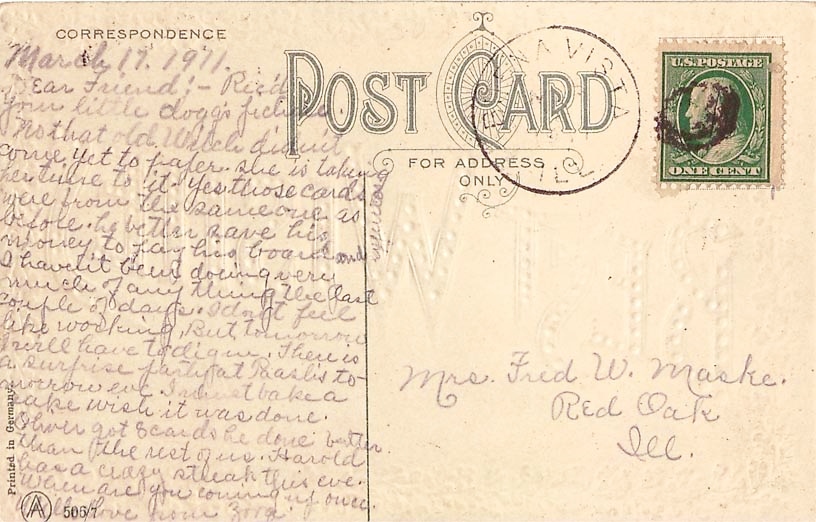 CORRESPONDENCE
March 17. 1911.
Dear Friend:- Rec'd
your little dogg's picture
No that old Welch didn't
come yet to paper. she is taking
her time to it. Yes those cards
were from the same one as
before. he better save his
money to pay his board and
I haven't been doing very
much of any thing the last
couple of days. I don't feel
like working. But tomorrow
I will have to dig in. There is
a surprise party at to-
morrow eve. I must bake a
cake wish it was done.
Oliver got 8 cards he done better
than the rest of us. Harold
has a crazy streak this eve.
When are you coming up once
love from
POST CARD
FOR ADDRESS
ONLY
VISTA
ILL
U.S. POSTAGE
ONE CENT
Mrs. Fred W. Maske.
Red Oak
Ill.
Printed in Germany.
A 506/7